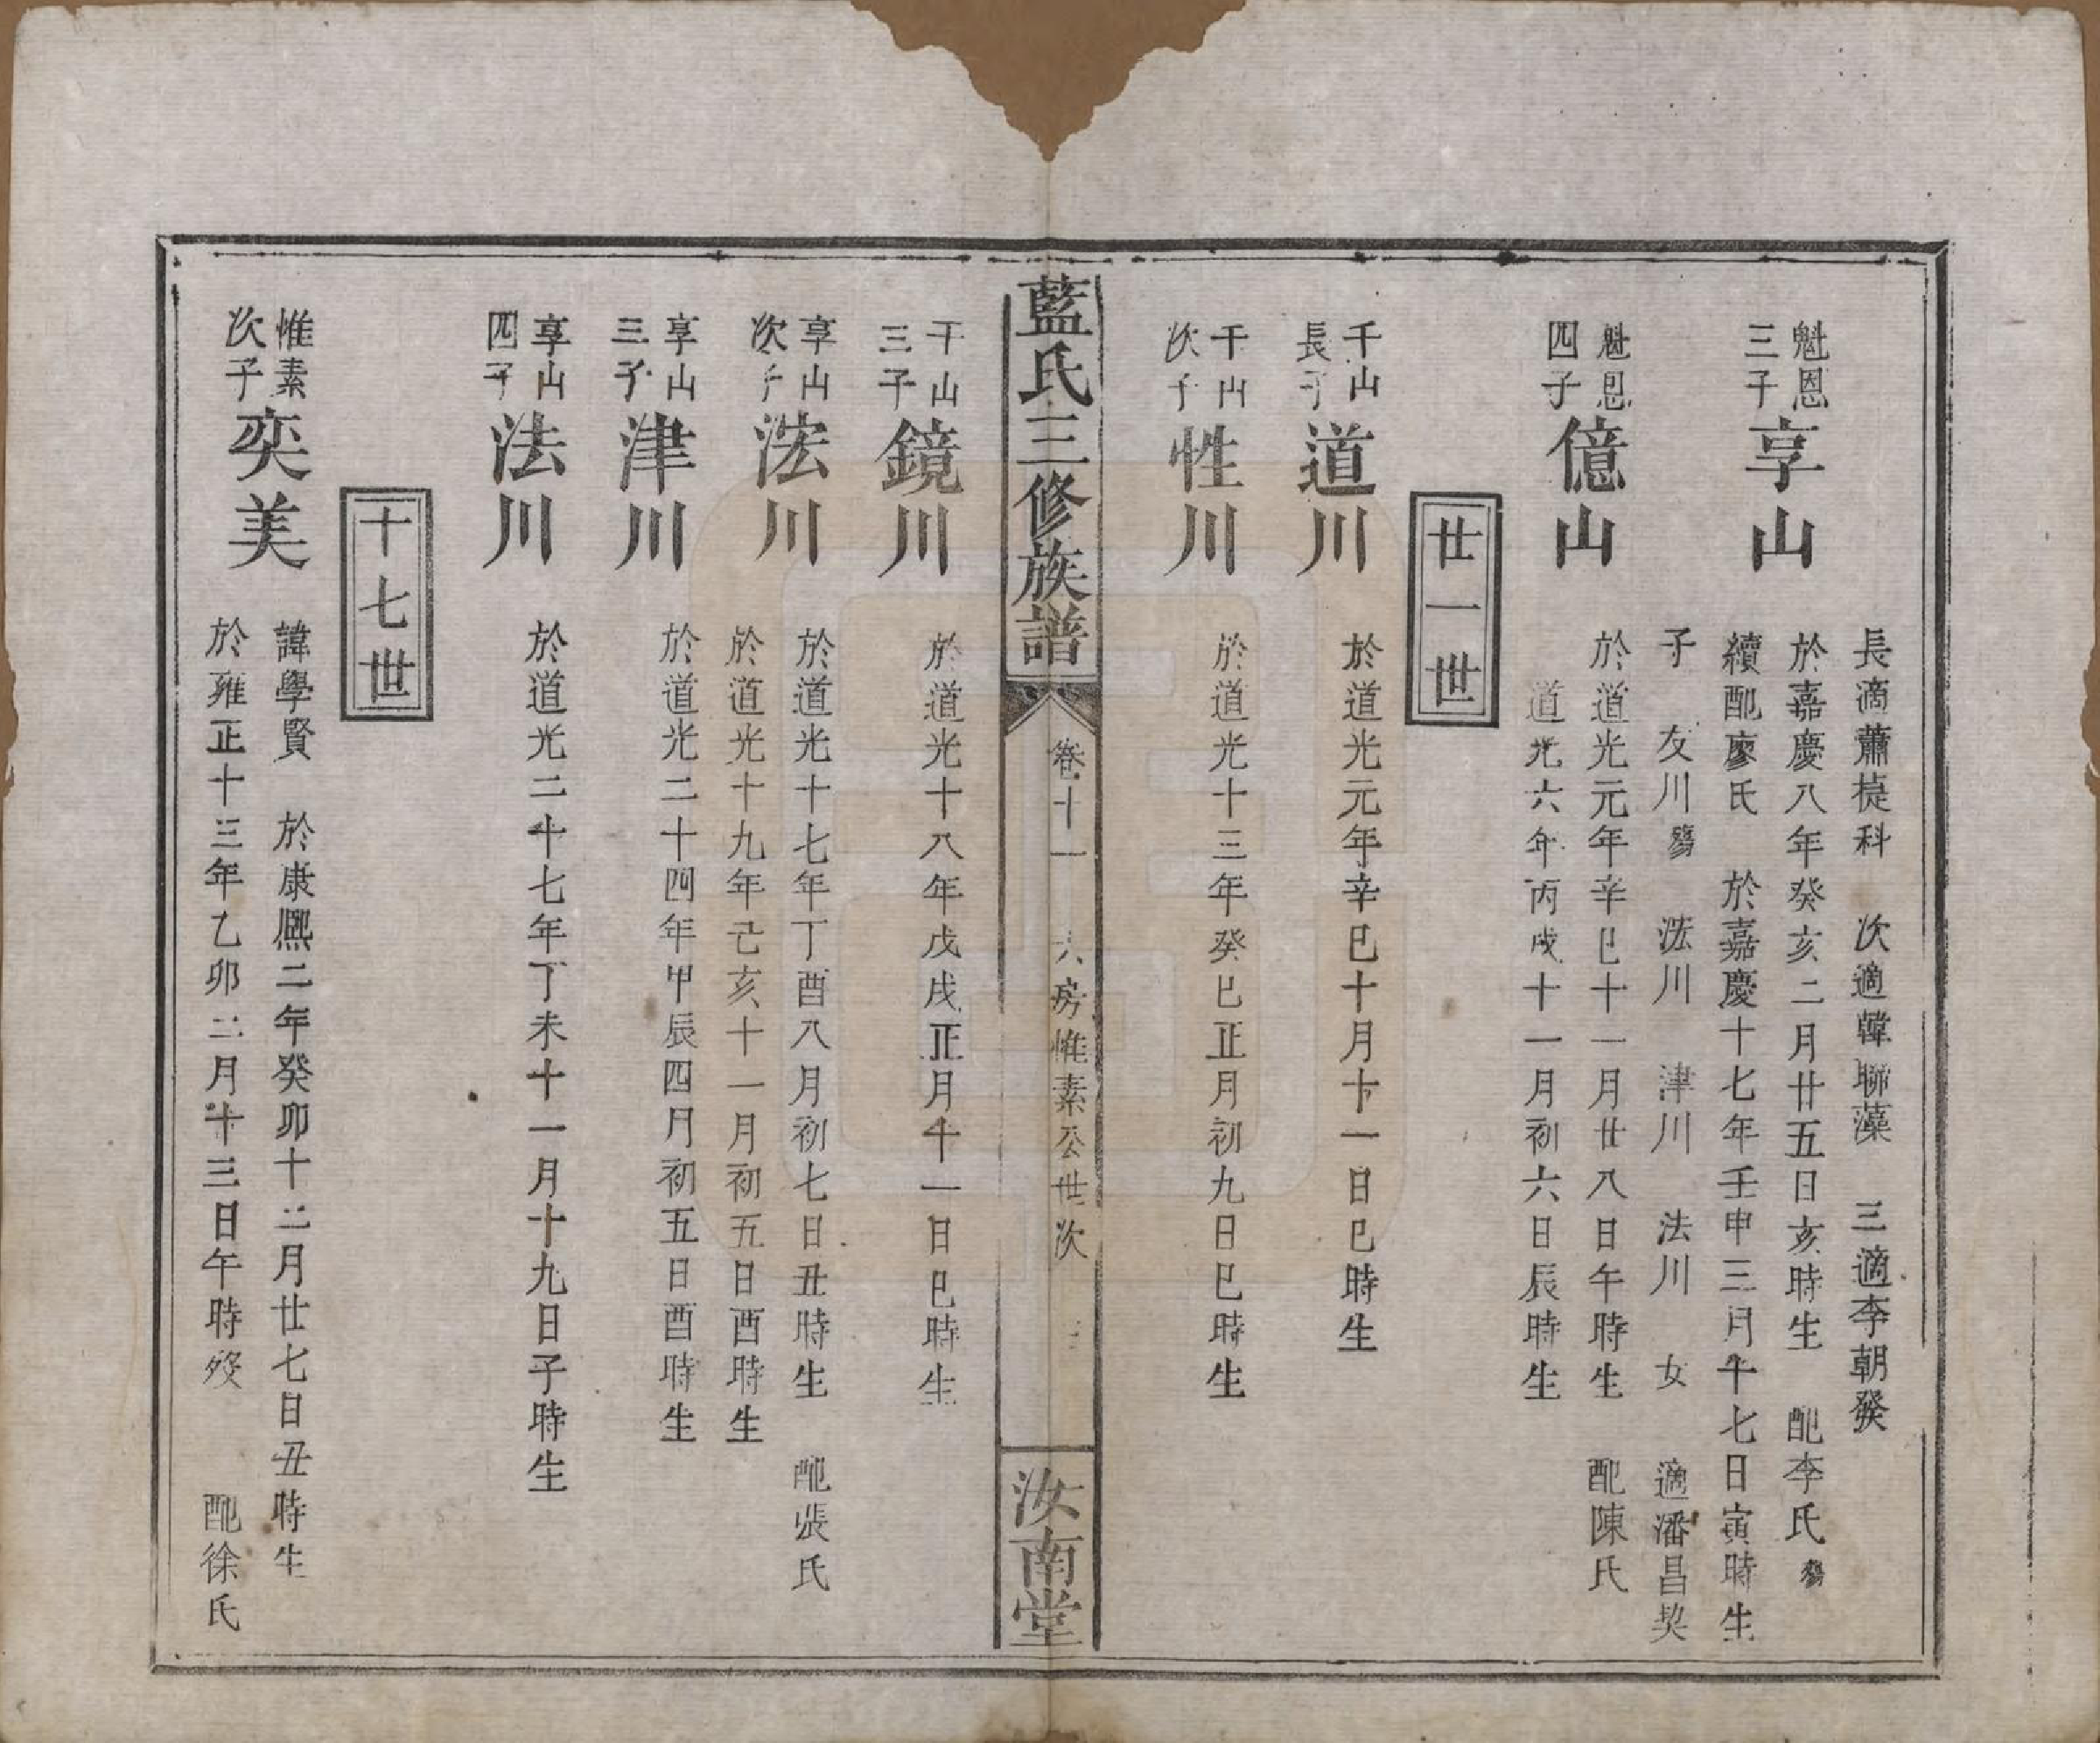 長適蕭揵科　次適韓聯藻　三適李朝發
魁恩三子　享山　於嘉慶八年癸亥二月廿五日亥時生　配李氏殤
續配廖氏　於嘉慶十七年壬申三月十七日寅時生
子　友川殤　浤川　津川　法川　女　適潘昌契
魁恩四子　億山　於道光元年辛巳十一月廿八日午時生　配陳氏
道光六年丙戌十一月初六日辰時生
廿一世
千山長子　道川　於道光元年辛巳十月十一日巳時生
千山次子　性川　於道光十三年癸巳正月初九日巳時生
藍氏三修族譜　卷十一　六房惟素公世次　汝南堂
千山三子　鏡川　於道光十八年戊戌正月十一日巳時生
享山次子　浤川　於道光十七年丁酉八月初七日丑時生　配張氏
於道光十九年己亥十一月初五日酉時生
享山三子　津川　於道光二十四年甲辰四月初五日酉時生
享山四子　法川　於道光二十七年丁未十一月十九日子時生
十七世
惟素次子　奕美　諱學賢　於康熙二年癸卯十二月廿七日丑時生
於雍正十三年乙卯二月十三日午時歿　配徐氏